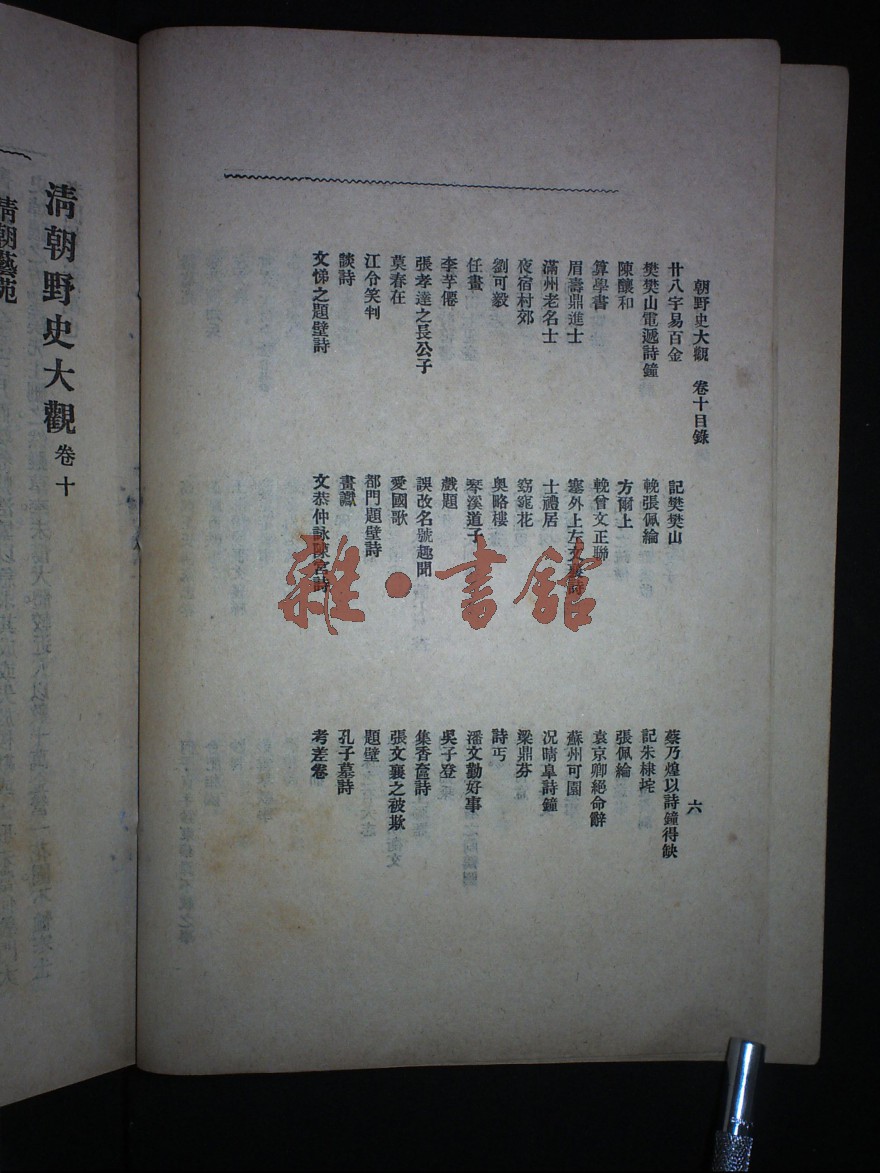 朝野史大觀 卷十目錄 六
廿八字易百金 記樊樊山 蔡乃煌以詩鐘得缺
樊樊山電遞詩鐘 輓張佩綸 記朱棣垞
陳釀和 方爾上 張佩綸
算學書 輓曾文正聯 袁京卿絕命辭
眉壽鼎進士 塞外上左文襄詩 蘇州可園
滿州老名士 士禮居 況晴皐詩鐘
夜宿村郊 窈窕花 梁鼎芬
劉可毅 奧略樓 詩丐
任畫 琴溪道子 潘文勤好事
李芋僊 戲題 吳子登
張孝達之長公子 誤改名號趣聞 集香奩詩
莫春在 愛國歌 張文襄之被欺
江令笑判 都門題壁詩 題壁
談詩 畫讖 孔子墓詩
文悌之題壁詩 文恭仲詠陳宮詩 考差卷
清朝野史大觀 卷十
清朝藝苑
雜·書館